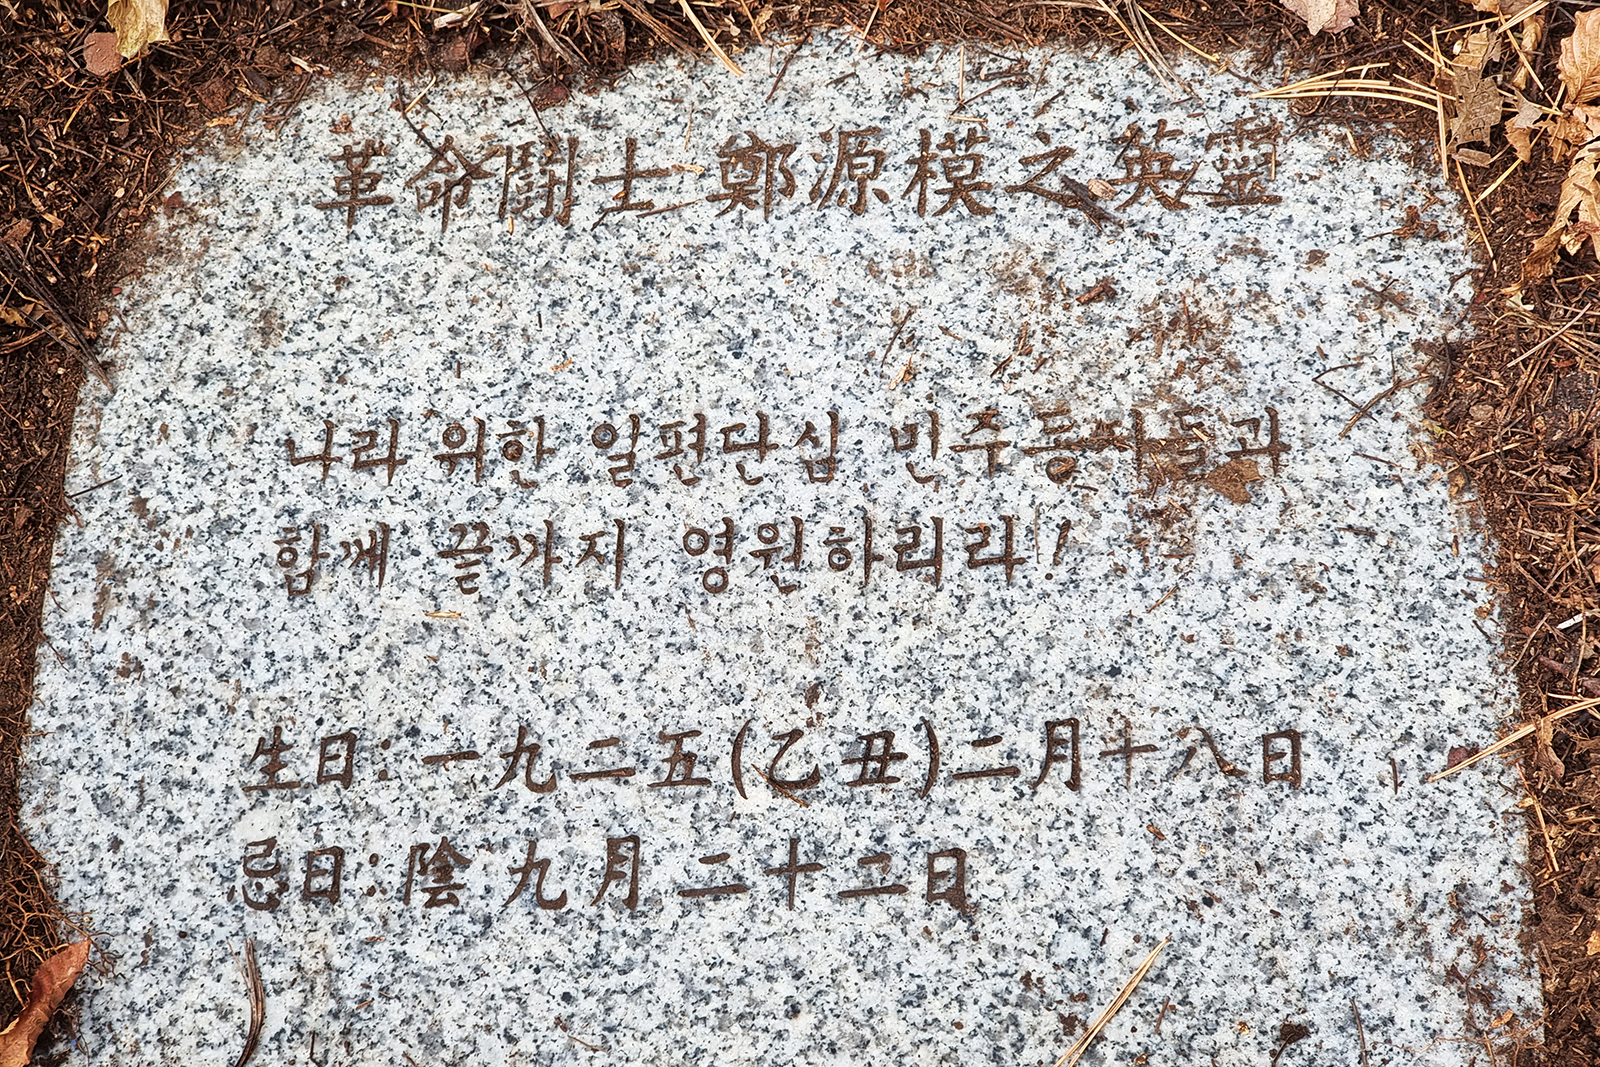 革命鬪士 鄭源模之英靈
나라 위한 일편단심 민주동지들과
함께 끝까지 영원하리라!
生日: 一九二五(乙丑)二月十八日
忌日: 陰 九月 二十二日